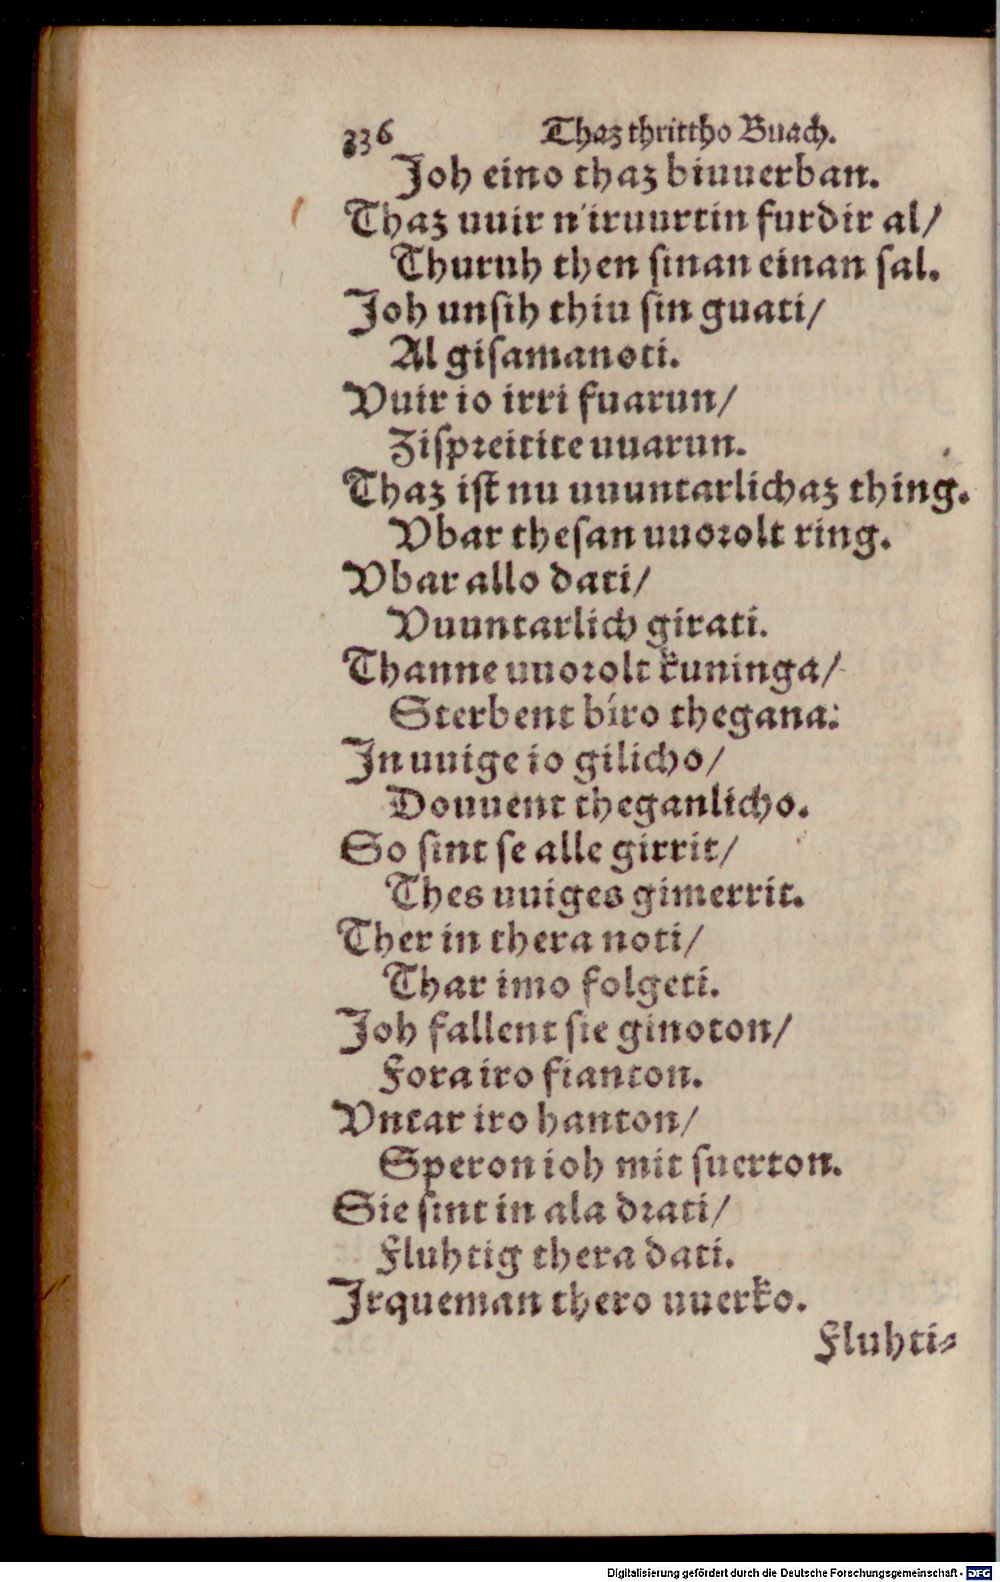 336 Thaz thrittho Buach.
Joh eino thaz biuuerban.
Thaz uuir n'iruurtin furdir al/
Thuruh then sinan einan sal.
Joh unsih thiu sin guati/
Al gisamanoti.
Vuir io irri fuarun/
Zispreitite uuarun.
Thaz ist nu ununtarlichaz thing.
Vbar thesan uuorolt ring.
Vbar allo dati/
Vuuntarlich girati.
Thanne uuorolt kuninga/
Sterbent bíro thegana:
In uuige io gilicho/
Douuent theganlicho.
So sint se alle girrit/
Thes uuiges gimerrit.
Ther in thera noti/
Thar imo folgeti.
Joh fallent sie ginoton/
Fora iro fianton.
Vntar iro hanton/
Speron ioh mit suerton.
Sie sint in ala drati/
Fluhtig thera dati.
Irqueman thero uuerko.
Fluhti-
Digitalisierung gefördert durch die Deutsche Forschungsgemeinschaft - DFG